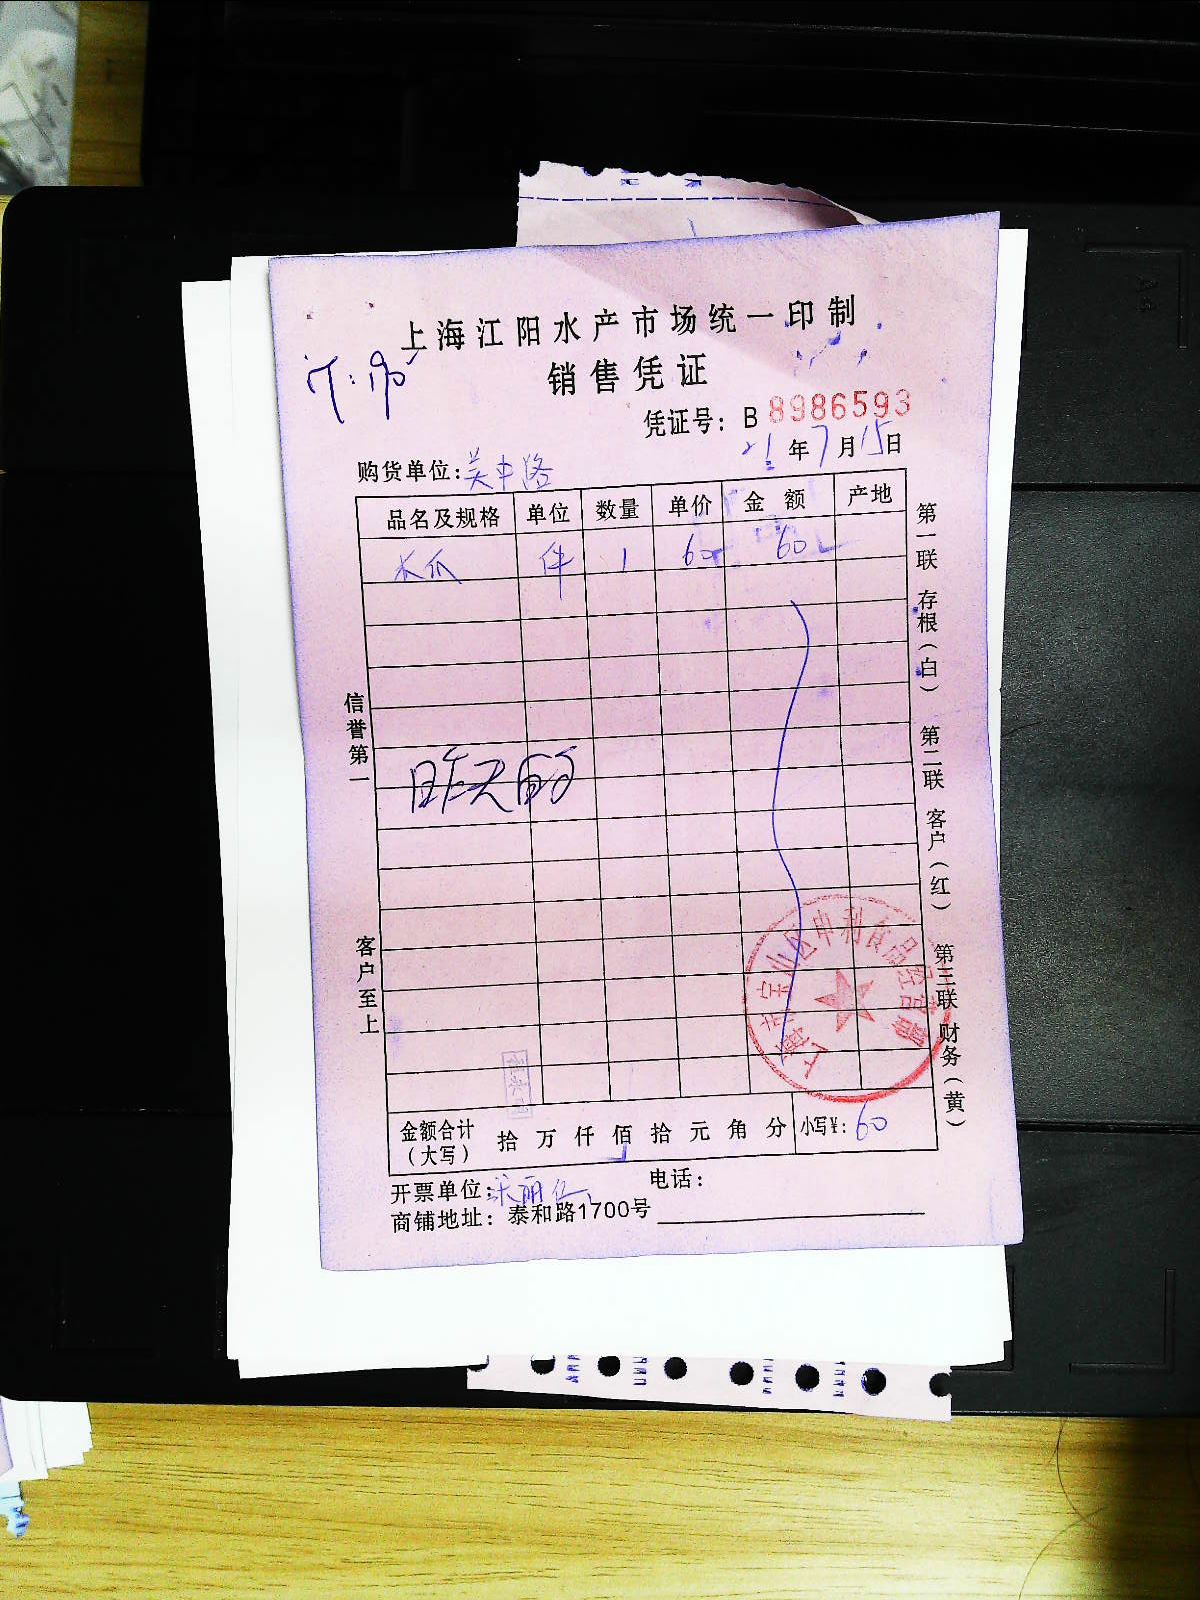 上海江阳水产市场统一印制
销售凭证
凭证号：B 8986593
21年7月15日
购货单位：吴中路
品名及规格 单位 数量 单价 金额 产地
木瓜 件 1 60 60
昨天的
信誉第一
客户至上
第一联 存根（白）
第二联 客户（红）
第三联 财务（黄）
上海市宝山区申利食品经营部
金额合计（大写） 拾 万 仟 佰 拾 元 角 分 小写¥：60
开票单位： 电话：
商铺地址：泰和路1700号